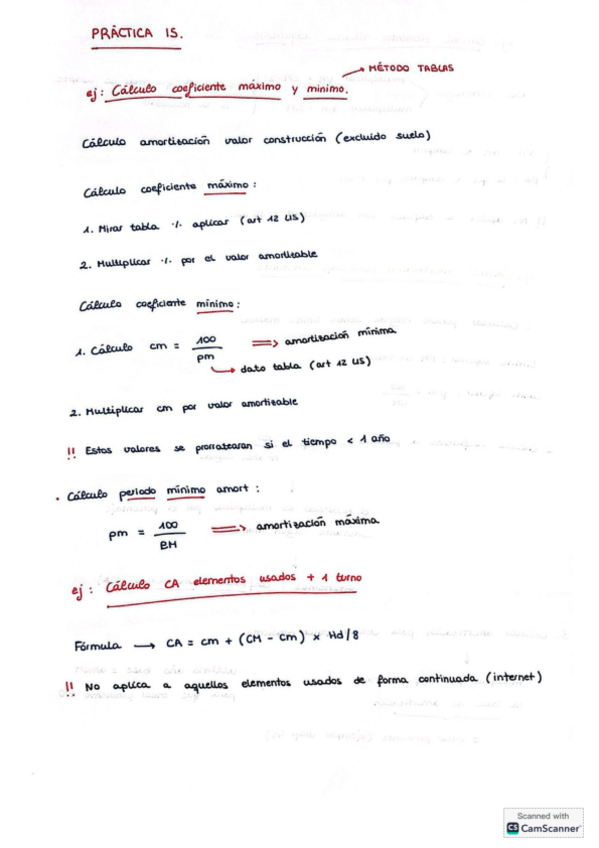 PRÁCTICA IS.
→ MÉTODO TABLAS
ej: Cálculo coeficiente máximo y mínimo.
Cálculo amortización valor construcción (excluido suelo)
Cálculo coeficiente máximo:
1. Mirar tabla % aplicar (art 12 LIS)
2. Multiplicar % por el valor amortizable
Cálculo coeficiente mínimo:
1. Cálculo cm = 100 / pm ⇒ amortización mínima
→ dato tabla (art 12 LIS)
2. Multiplicar cm por valor amortizable
!! Estos valores se prorratearan si el tiempo < 1 año
· Cálculo periodo mínimo amort:
pm = 100 / BM ⇒ amortización máxima
ej: Cálculo CA elementos usados + 1 turno
Fórmula → CA = cm + (CM - cm) x Hd/8
!! No aplica a aquellos elementos usados de forma continuada (internet)
Scanned with
CS CamScanner